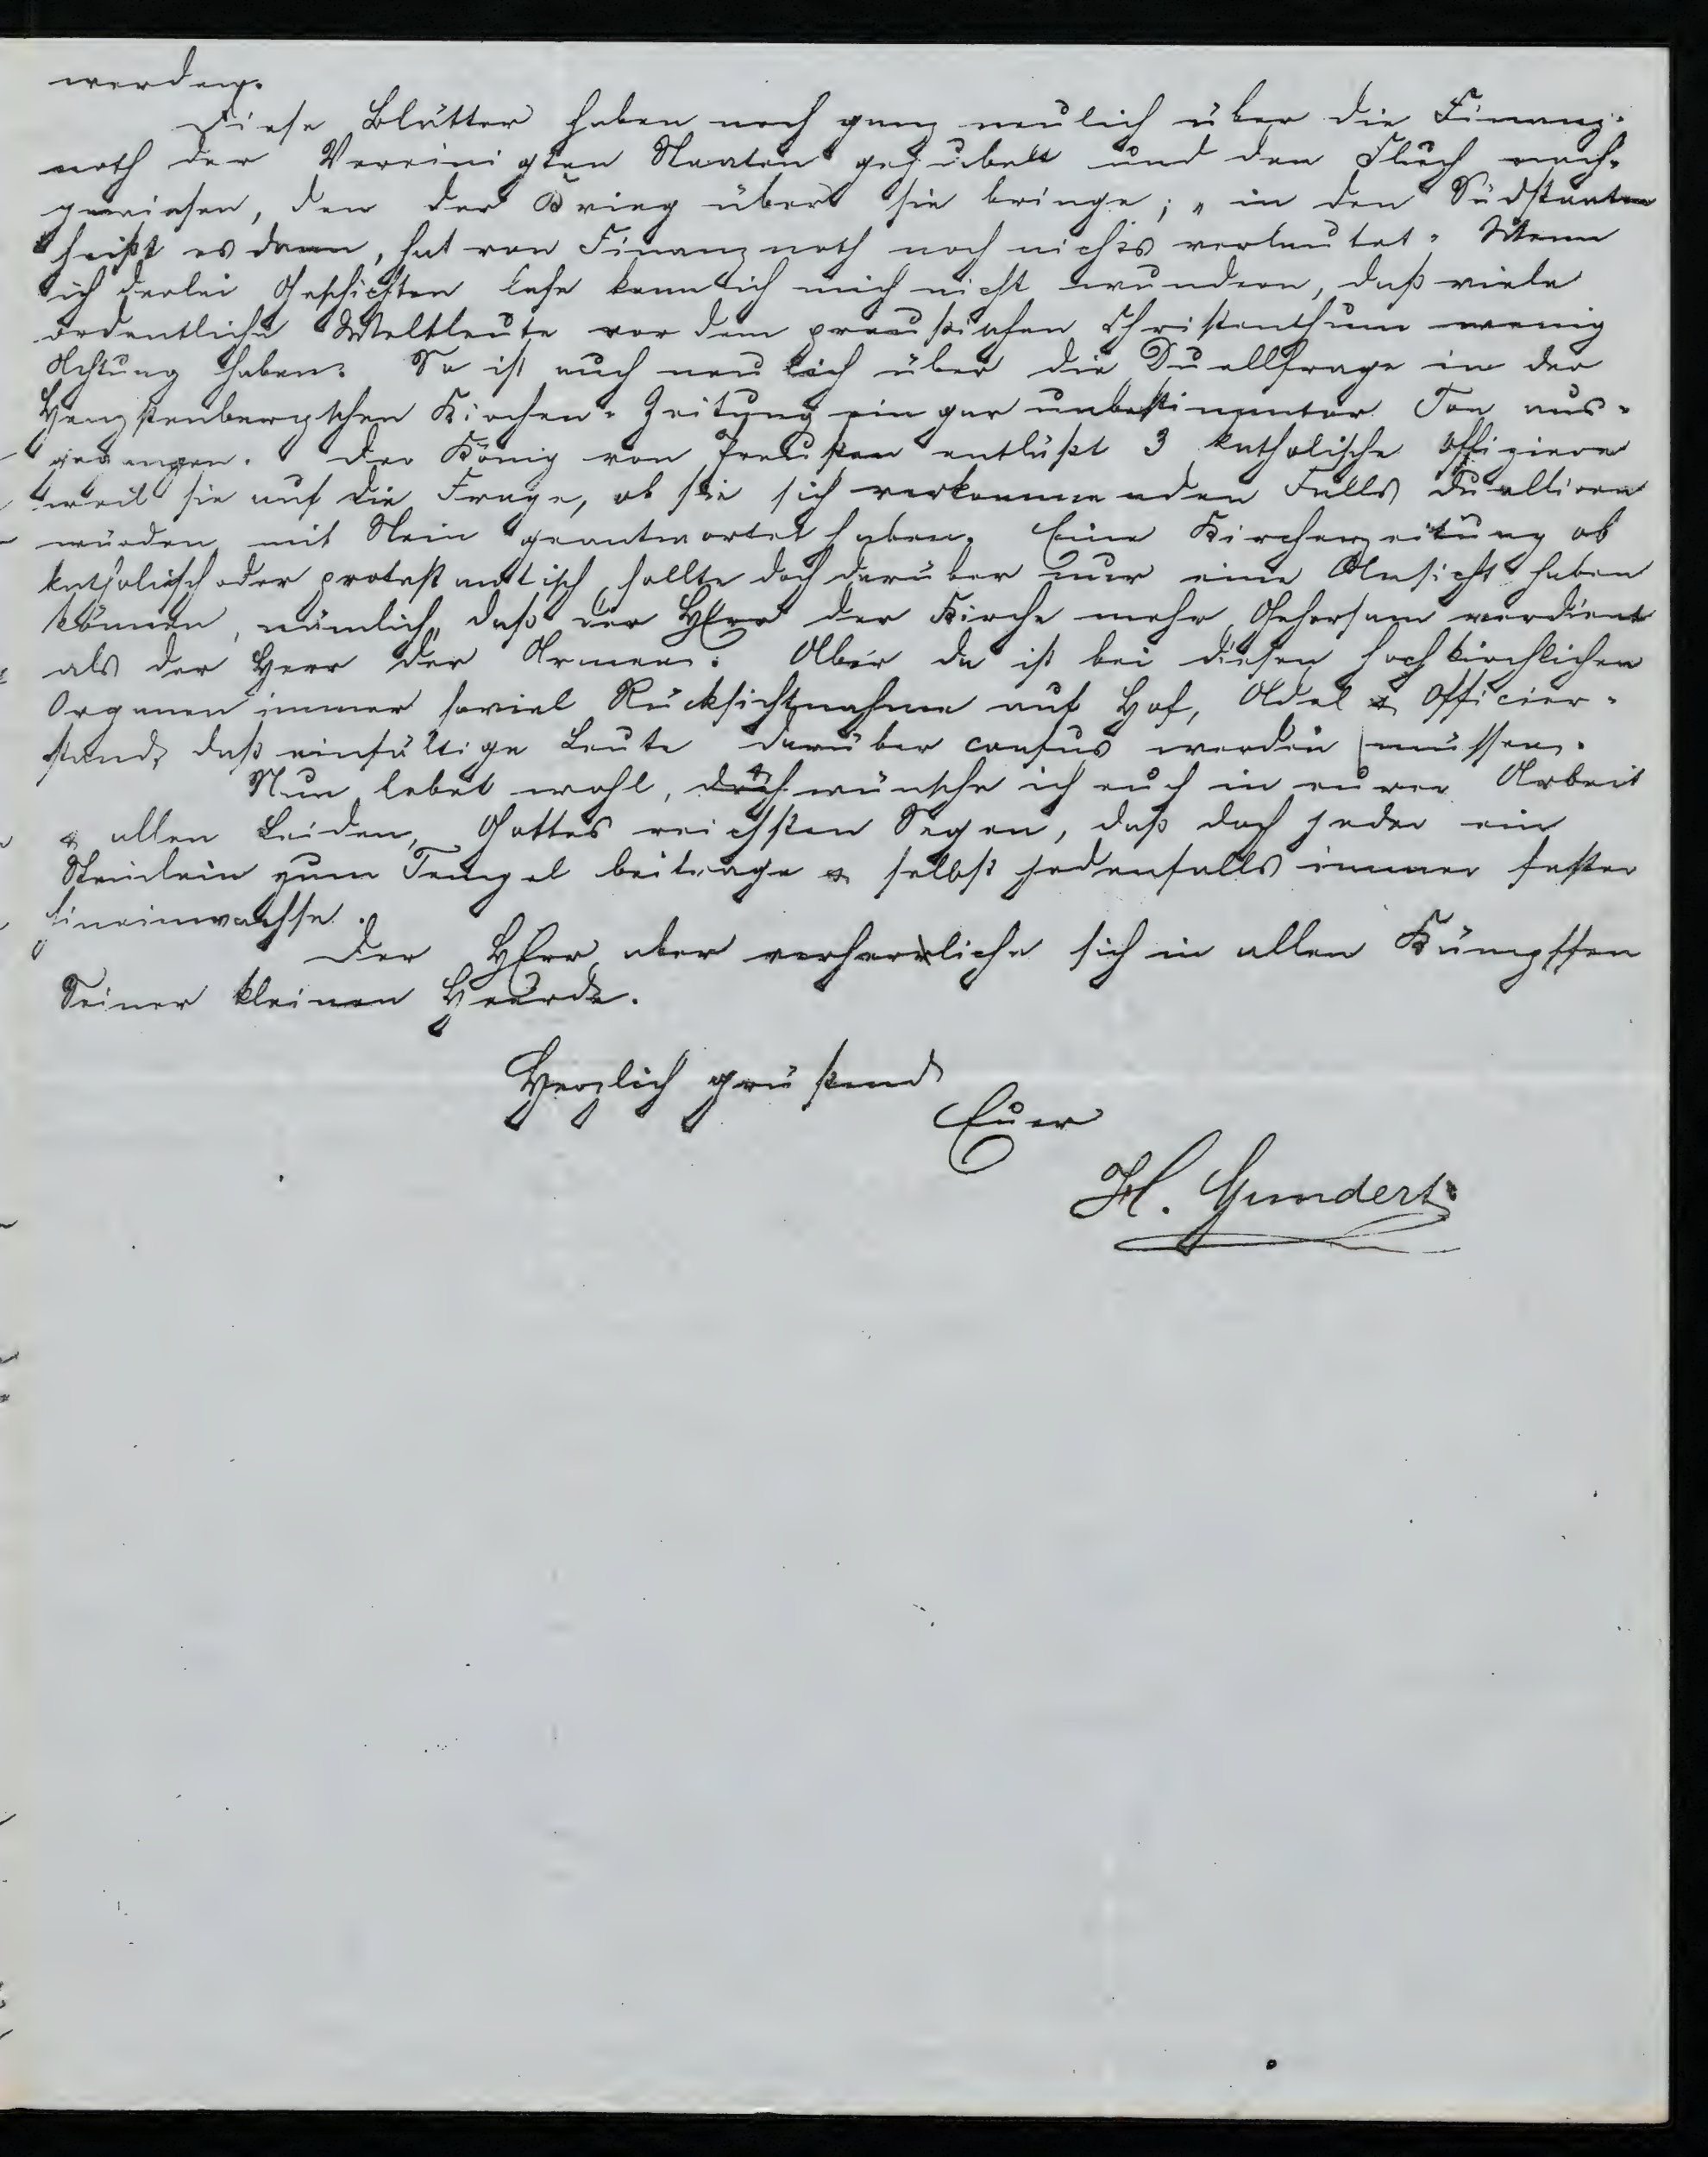 werden.
Diese Blätter haben noch ganz neulich über die Finanz-
noth der Vereinigten Staaten gejubelt und den Fluch nach-
gewiesen, den der Krieg über sie bringe; „in den Südstaaten
heißt es dann, hat von Finanznoth noch nichts verlautet." Wenn
ich derlei Geschichten lese kann ich mich nicht wundern, daß viele
ordentliche Weltleute vor dem preußischen Christenthum wenig
Achtung haben. So ist auch neulich über die Duellfrage in der
Hengstenbergschen Kirchen-Zeitung ein gar unbestimmter Ton aus-
gegangen. Der König von Preußen entläßt 3 katholische Offiziere
weil sie auf die Frage, ob sie sich vorkommenden Falls duelliren
würden mit Nein geantwortet haben. Eine Kirchenzeitung ob
katholisch oder protestantisch sollte doch darüber nur eine Ansicht haben
können, nämlich, daß der HErr der Kirche mehr Gehorsam verdient
als der Herr der Armee. Aber da ist bei diesen hochkirchlichen
Organen immer soviel Rücksichtnahme auf Hof, Adel & Officier-
stand, daß einfältige Leute darüber confus werden müssen.
Nun lebet wohl, doch wünsche ich euch in eurer Arbeit
& allen Leiden, Gottes reichsten Segen, daß doch jeder ein
Steinlein zum Tempel beitrage & selbst jedenfalls immer fester
hineinwachse.
Der HErr aber verherrliche sich in allen Kämpffen
Seiner kleinen Heerde.
Herzlich grüßend
Euer
H. Gundert